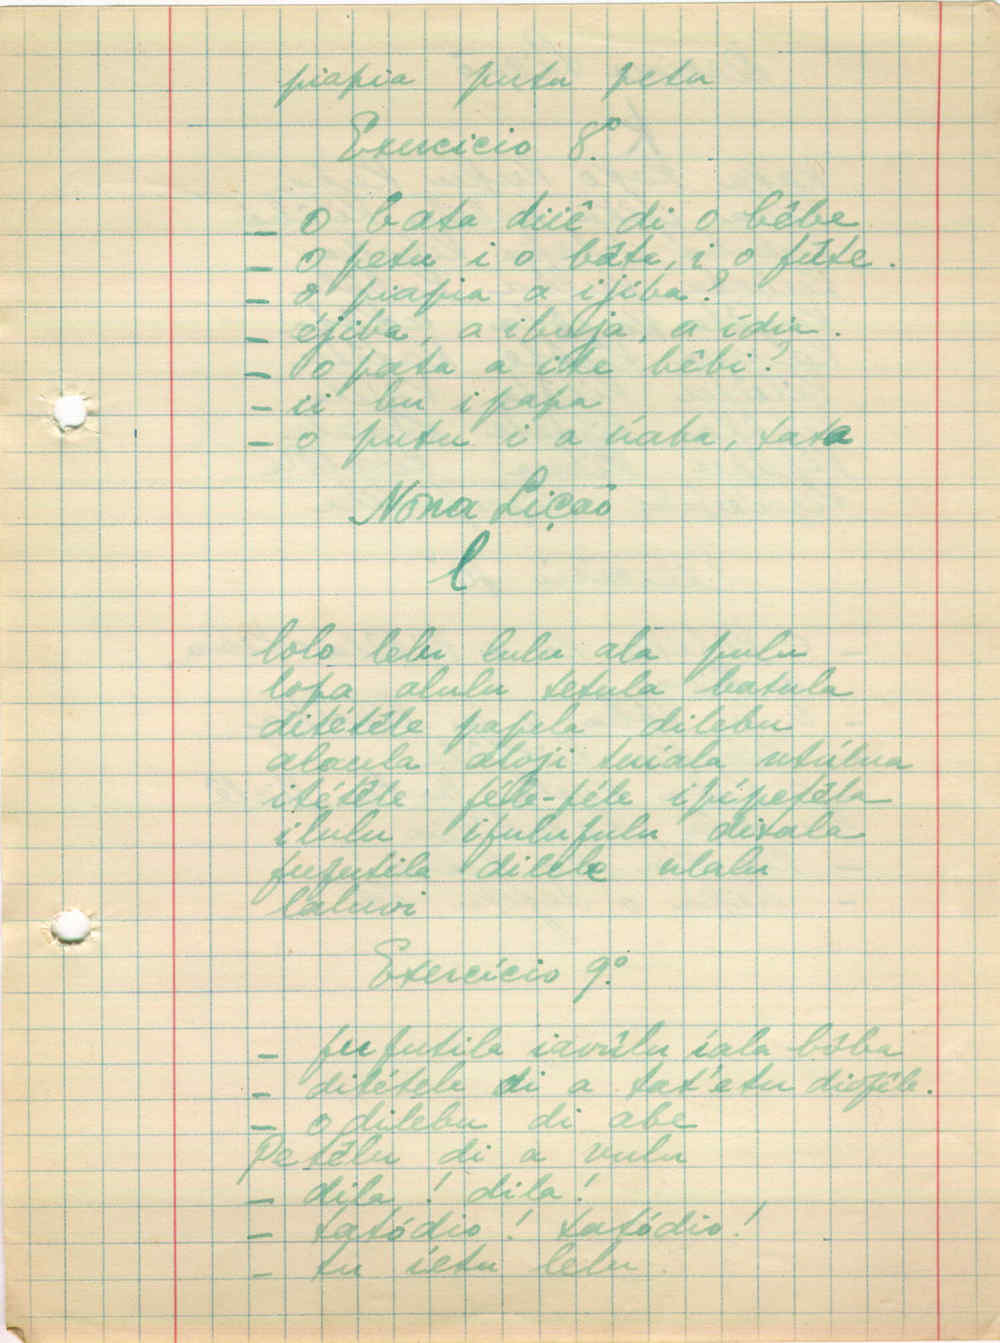 piapia putu petu
Exercicio 8.º
- o bata diiê di o bêbe
- o petu i o bâta, i o fûte.
- o piapia a ijiba?
- éjiba, a ibuja, a ídia.
- o pata a ite bêbi?
- ii bu ipapa
- o putu i a úaba, tata
Nona Lição
l
lolo lelu lulu ala pulu
lopa alulu tetula batula
ditétêle papela dilebu
aloji tuiala
itétêle féle-féle ipípetêla
ilulu ifulufulu ditala
fufutila dilele ulalu
laluvi
Exercício 9.º
- fufutila iavúlu íala bôba
- ditétele di a tat'etu
- o dilebu di abe
Petêlu di a vulu
- dila! dila!
- tatódio! tatódio!
- tu íetu lelu